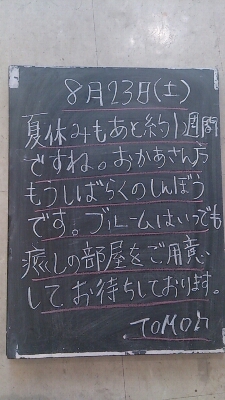 8月23日(土)
夏休みもあと約1週間
ですね。おかあさん方
もうしばらくのしんぼう
です。ブルームはいつでも
癒しの部屋をご用意
して お待ちしております。